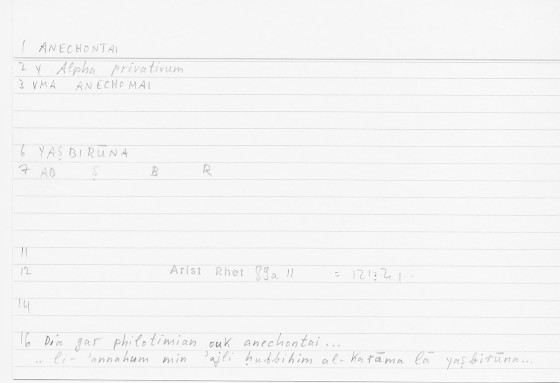 1 ANECHONTAI
2 V Alpha privativum
3 VMA ANECHOMAI
6 YAṢBIRŪNA
7 AB Ṣ B R
11
12 Arist Rhet 89a 11 =
14
16 Dia gar philotimian ouk anechontai...
.. li-'annahum min 'ajli ḥubbihim al-karāma lā yaṣbirūna...